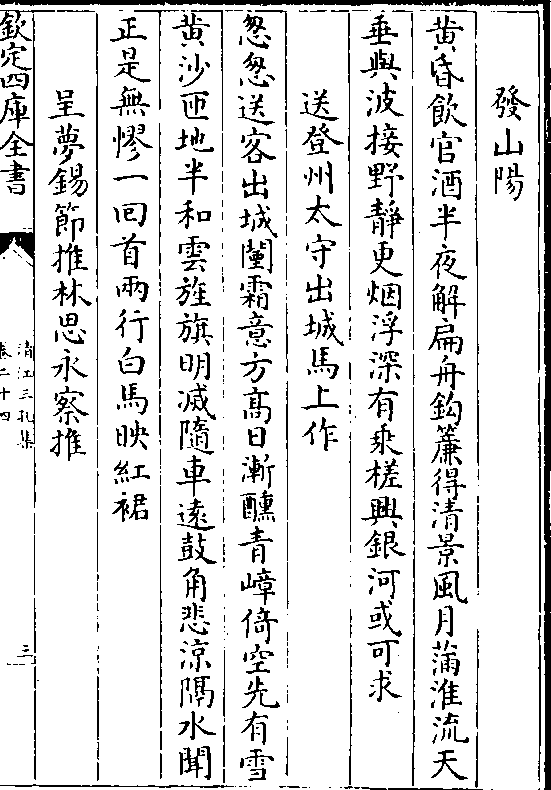 發山陽
黄昏飲官酒半夜解扁舟鈎簾得清景風月蒲淮流天
垂與波接野靜更烟浮深有乗槎興銀河或可求
送登州太守出城馬上作
怱怱送客出城闉霜意方高日漸醺青嶂倚空先有雪
黄沙匝地半和雲旌旗明滅隨車逺鼓角悲涼隔水聞
正是無憀一回首兩行白馬映紅裙
呈夢錫節推林思永察推
欽定四庫全書
清江三孔集
卷二十四
三